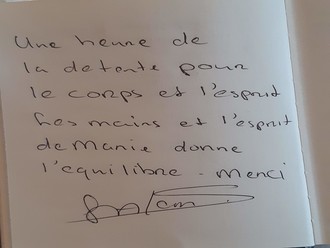 Une heure de
la detente pour
le corps et l'esprit
Les mains et l'esprit
de Manie donne
l'equilibre - Merci